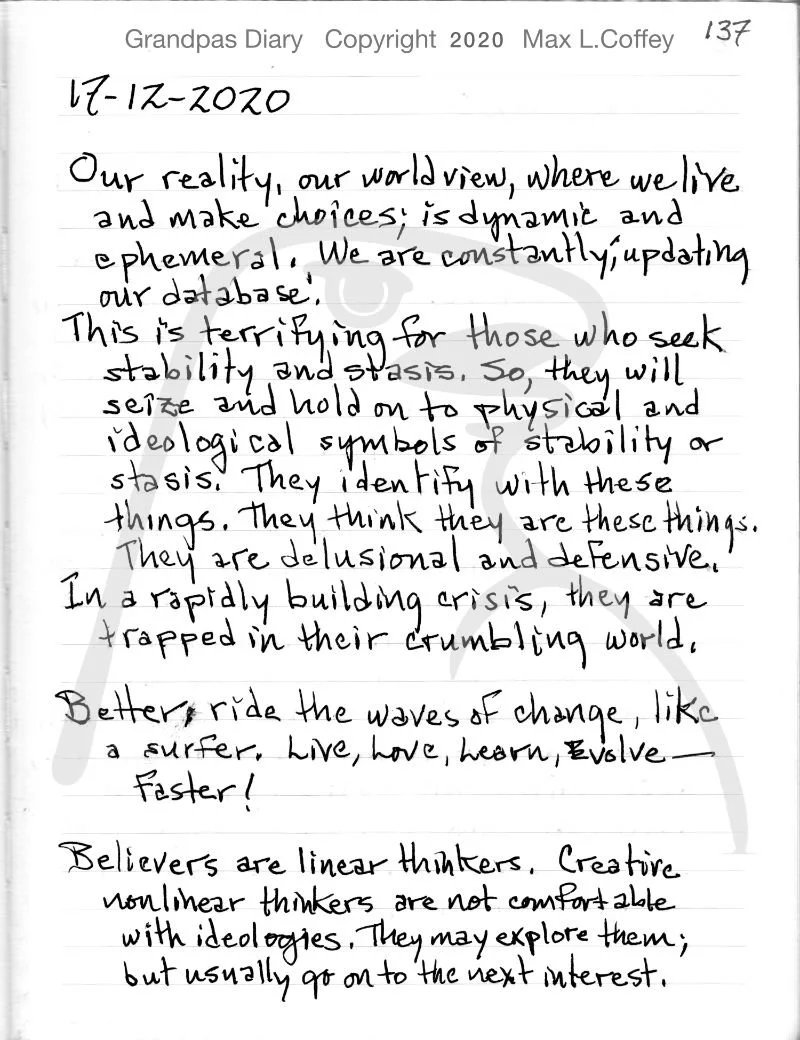 Grandpas Diary Copyright 2020 Max L.Coffey 137
17-12-2020
Our reality, our world view, where we live
and make choices; is dynamic and
ephemeral. We are constantly, "updating
our database".
This is terrifying for those who seek
stability and stasis. So, they will
seize and hold on to physical and
ideological symbols of stability or
stasis. They identify with these
things. They think they are these things.
They are delusional and defensive.
In a rapidly building crisis, they are
trapped in their crumbling world.
Better, ride the waves of change, like
a surfer. Live, Love, Learn, Evolve—
Faster!
Believers are linear thinkers. Creative
nonlinear thinkers are not comfortable
with ideologies. They may explore them;
but usually go on to the next interest.